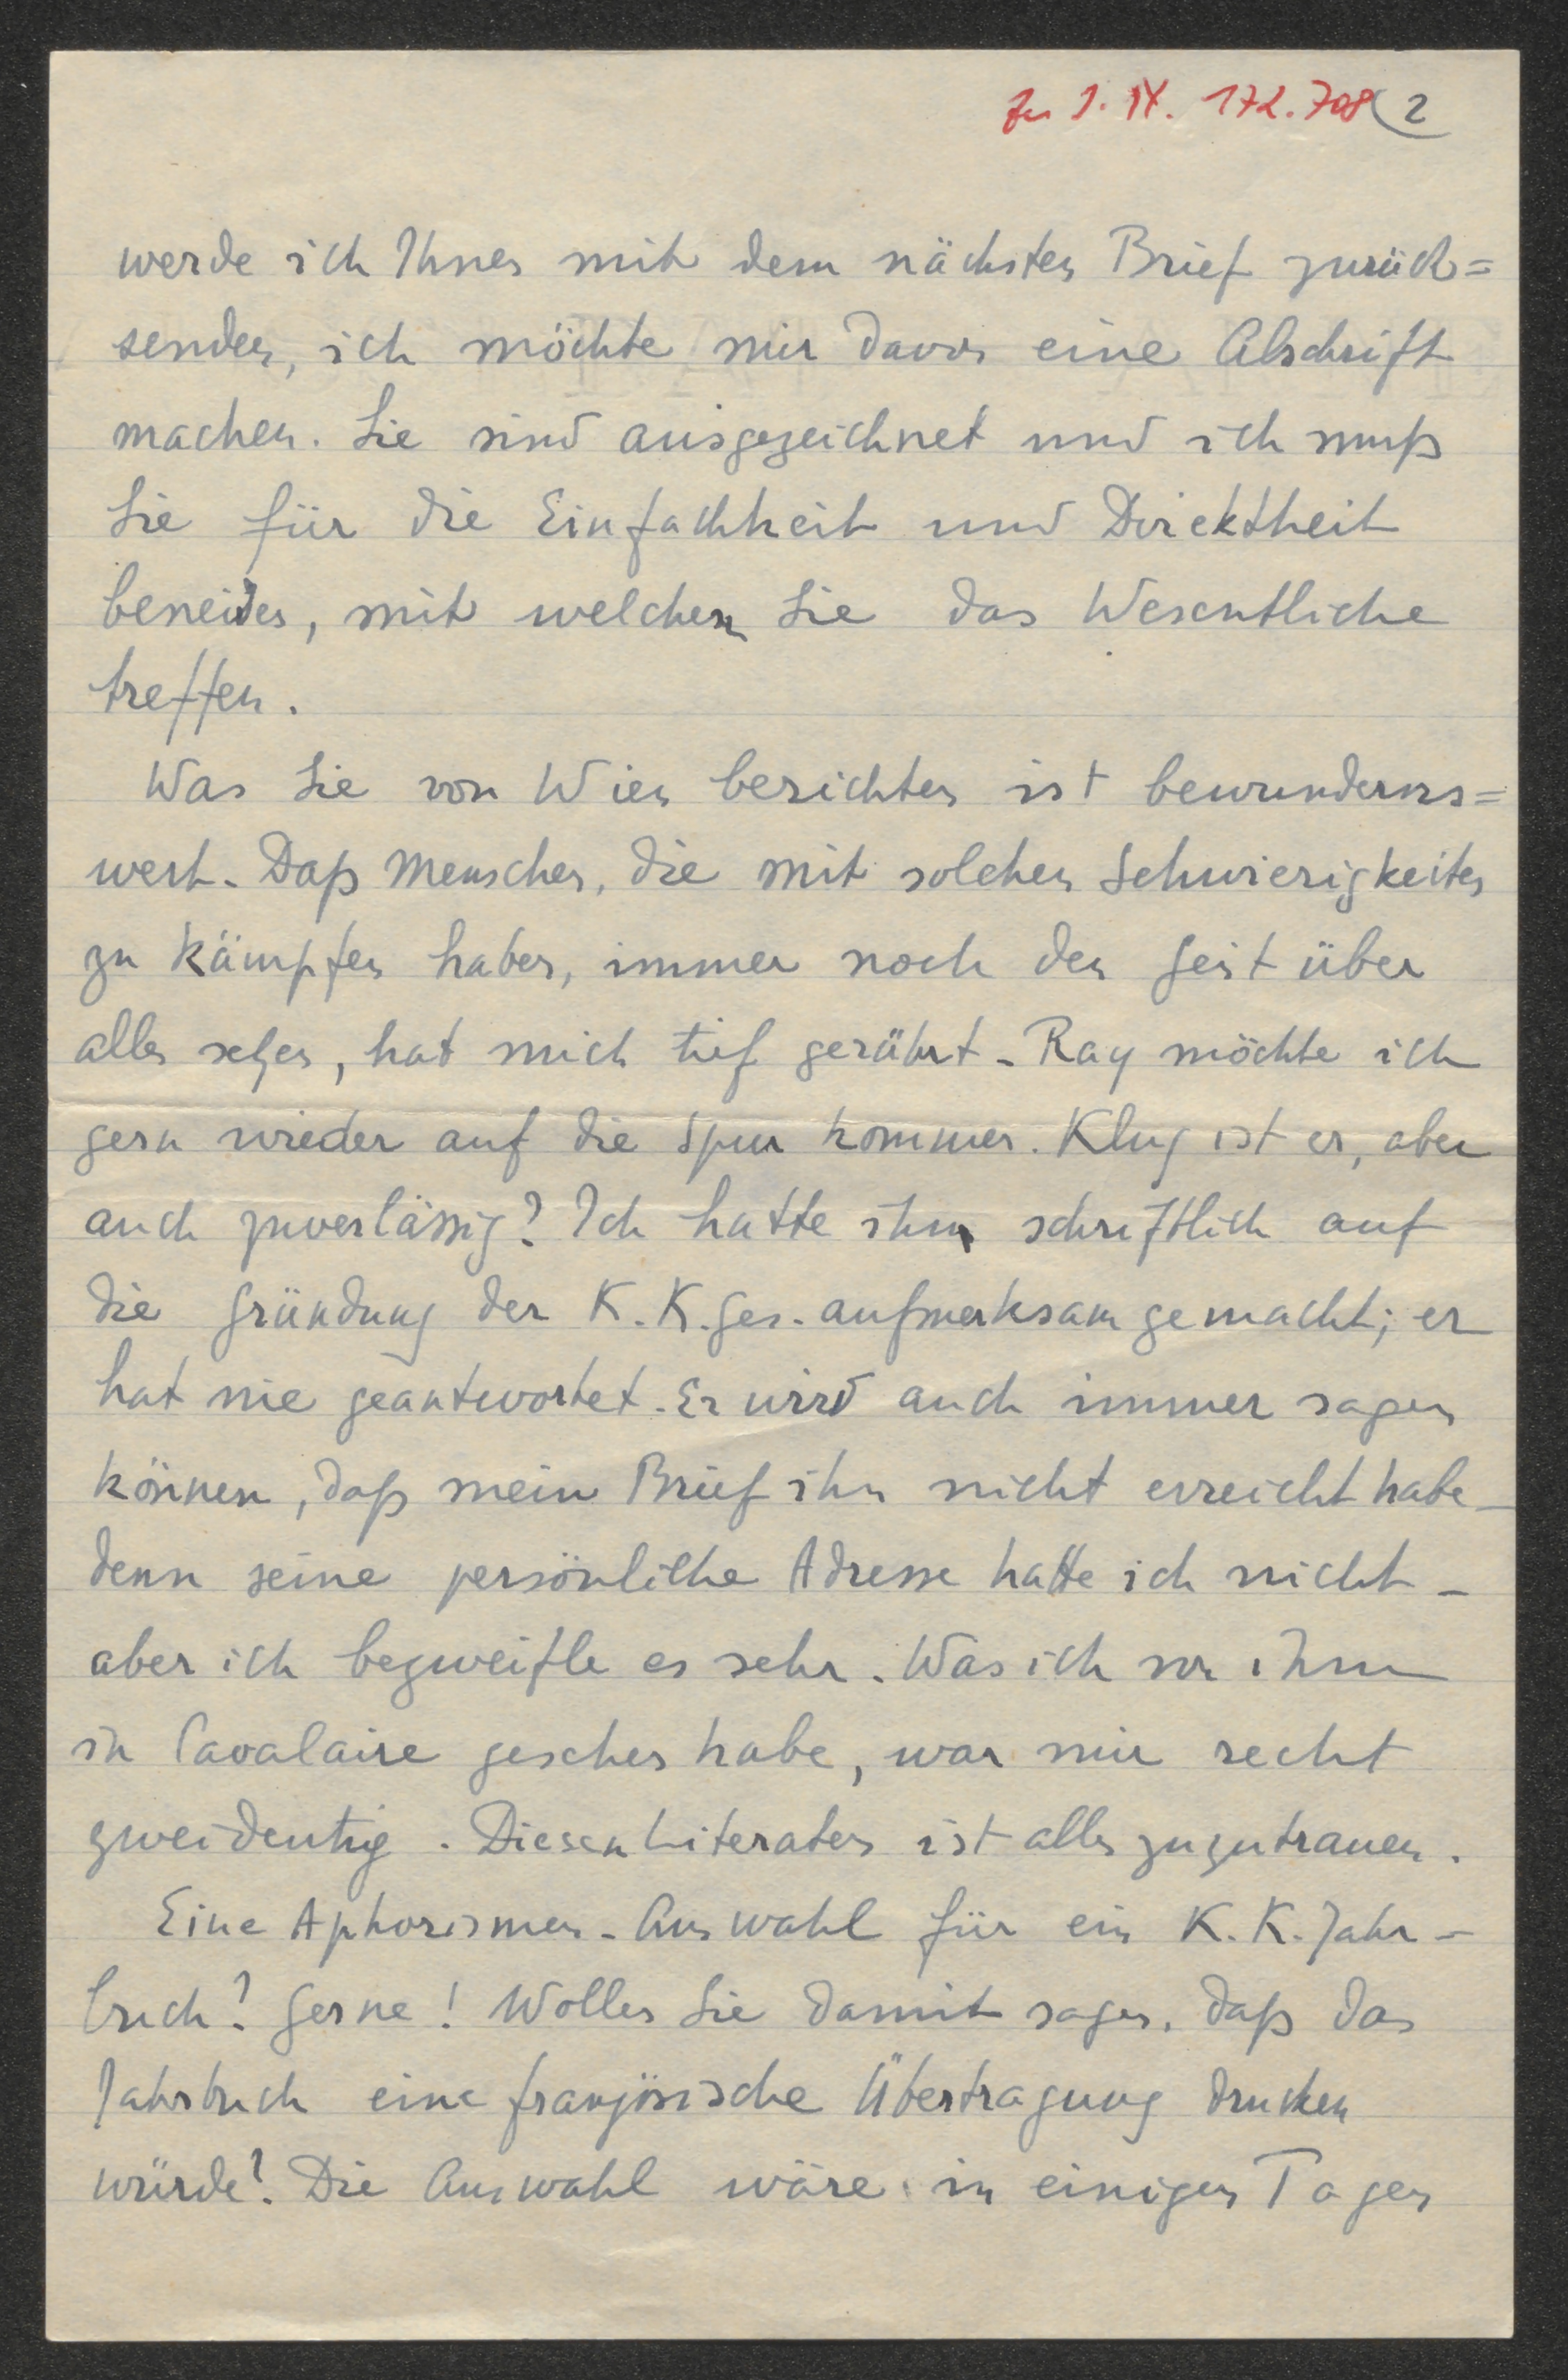 zu J. IX. 172.708 (2
werde ich Ihnen mit dem nächsten Brief zurück=
senden, ich möchte mir davon eine Abschrift
machen. Sie sind ausgezeichnet und ich muß
Sie für die Einfachheit und Direktheit
beneiden, mit welchen Sie das Wesentliche
treffen.
Was Sie von Wien berichten ist bewunderns=
wert. Daß Menschen, die mit solchen Schwierigkeiten
zu kämpfen haben, immer noch den Geist über
alles setzen, hat mich tief gerührt. Ray möchte ich
gern wieder auf die Spur kommen. Klug ist er, aber
auch zuverlässig? Ich hatte ihn schriftlich auf
die Gründung der K.K.Ges. aufmerksam gemacht; er
hat nie geantwortet. Er wird auch immer sagen
können, daß mein Brief ihn nicht erreicht habe –
denn seine persönliche Adresse hatte ich nicht –
aber ich bezweifle es sehr. Was ich von ihm
in Cavalaire gesehen habe, war mir recht
zweideutig. Diesen Literaten ist alles zuzutrauen.
Eine Aphorismen-Auswahl für ein K.K. Jahr-
buch? Gerne! Wollen Sie damit sagen, daß das
Jahrbuch eine französische Übertragung drucken
würde? Die Auswahl wäre in einigen Tagen